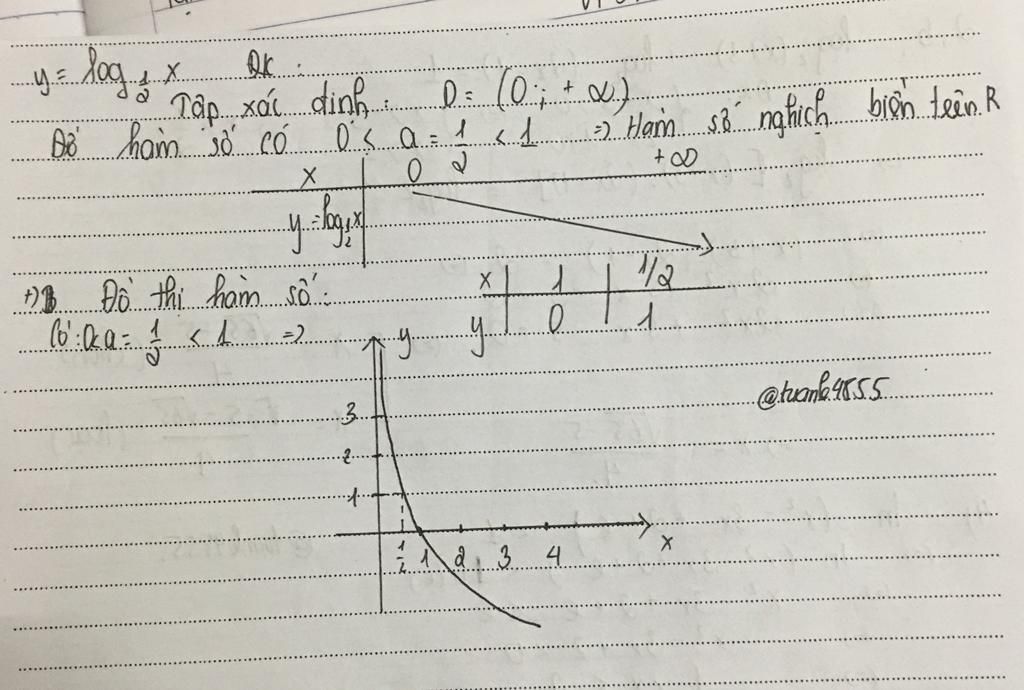 y = log_{1/2} x ĐK:
Tập xác định: D = (0; +∞)
Đồ hàm số có 0 < a = 1/2 < 1 => Hàm số nghịch biến trên R
x 0 +∞
y = log_{1/2} x
+) Đồ thị hàm số:
x 1 1/2
y 0 1
Có: a = 1/2 < 1 =>
y
3
2
1
1/2 1 2 3 4
x
@tuanh.4855